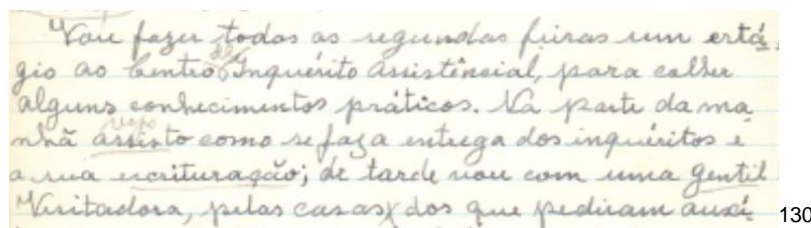 Vou fazer todas as segundas feiras um está-
gio ao Centro de Inquérito Assistêncial, para colher
alguns conhecimentos práticos. Na parte da ma
nhã assisto vejo como se faz a entrega dos inquéritos e
a sua escrituração; de tarde vou com uma gentil
Visitadora, pelas casas dos que pediram auxí
130